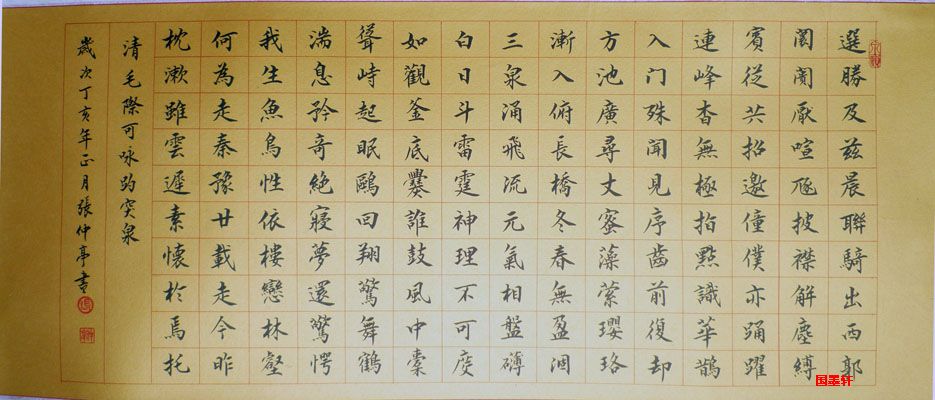 選勝及茲晨聯騎出西郭
闤闠厭喧豗披襟解塵縛
賓從共招邀僮僕亦踊躍
連峰杳無極指點識華鵲
入門殊聞見序齒前復却
方池廣尋丈蜜藻縈瓔珞
漸入俯長橋冬春無盈涸
三泉涌飛流元氣相盤礴
白日斗雷霆神理不可度
如觀釜底爨誰鼓風中橐
聳峙起眠鷗回翔驚舞鶴
湍息矜奇絕寢夢還驚愕
我生魚鳥性依棲戀林壑
何為走秦豫廿載走今昨
枕漱雖雲遲素懷於焉托
清毛際可咏趵突泉
歲次丁亥年正月張仲亭書
国墨轩